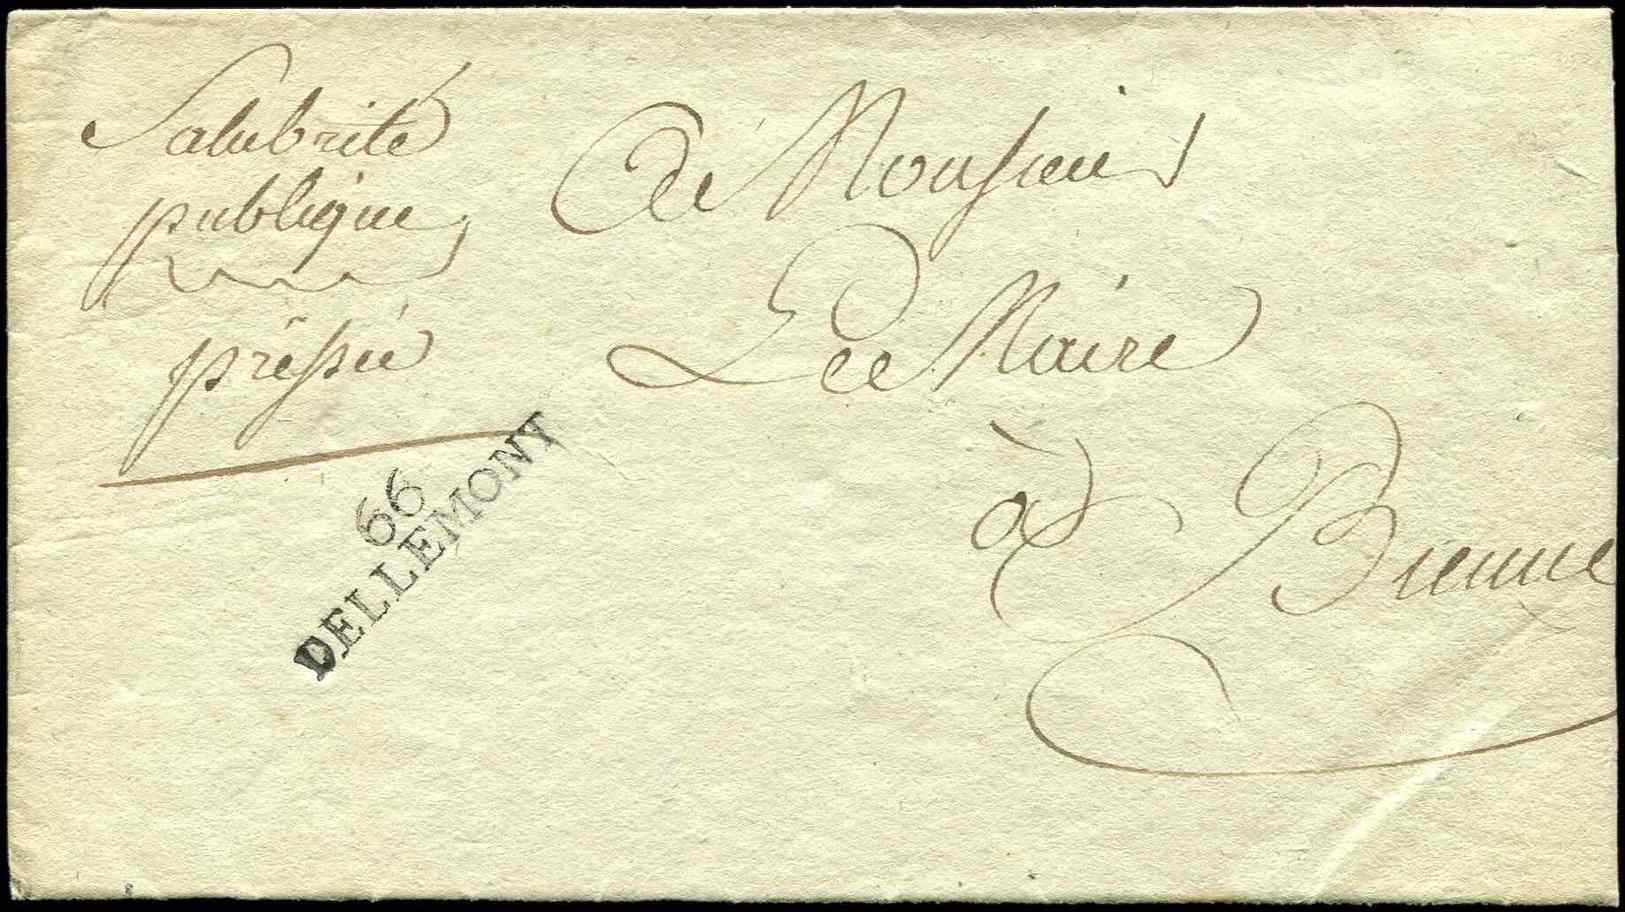 Salubrité
publique
préssée
66
DELLEMONT
A Monsieur
Le Maire
à Bienne